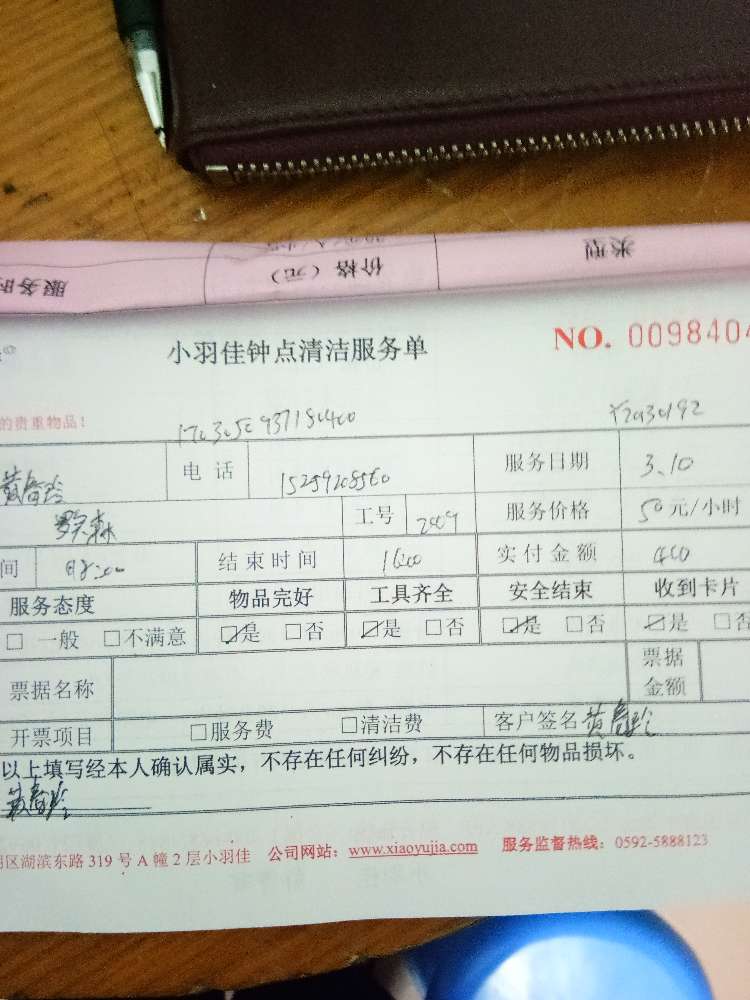 类型 价格（元） 服务时
小羽佳钟点清洁服务单 NO. 0098404
的贵重物品！
电话 服务日期 3.10
工号 2409 服务价格 50元/小时
间 结束时间 16:00 实付金额 400
服务态度 物品完好 工具齐全 安全结束 收到卡片
□ 一般 □不满意 ☑是 □否 ☑是 □否 ☑是 □否 ☑是 □否
票据名称 票据金额
开票项目 □服务费 □清洁费 客户签名 黄春玲
以上填写经本人确认属实，不存在任何纠纷，不存在任何物品损坏。
黄春玲
明区湖滨东路 319 号 A 幢 2 层小羽佳 公司网站：www.xiaoyujia.com 服务监督热线：0592-5888123